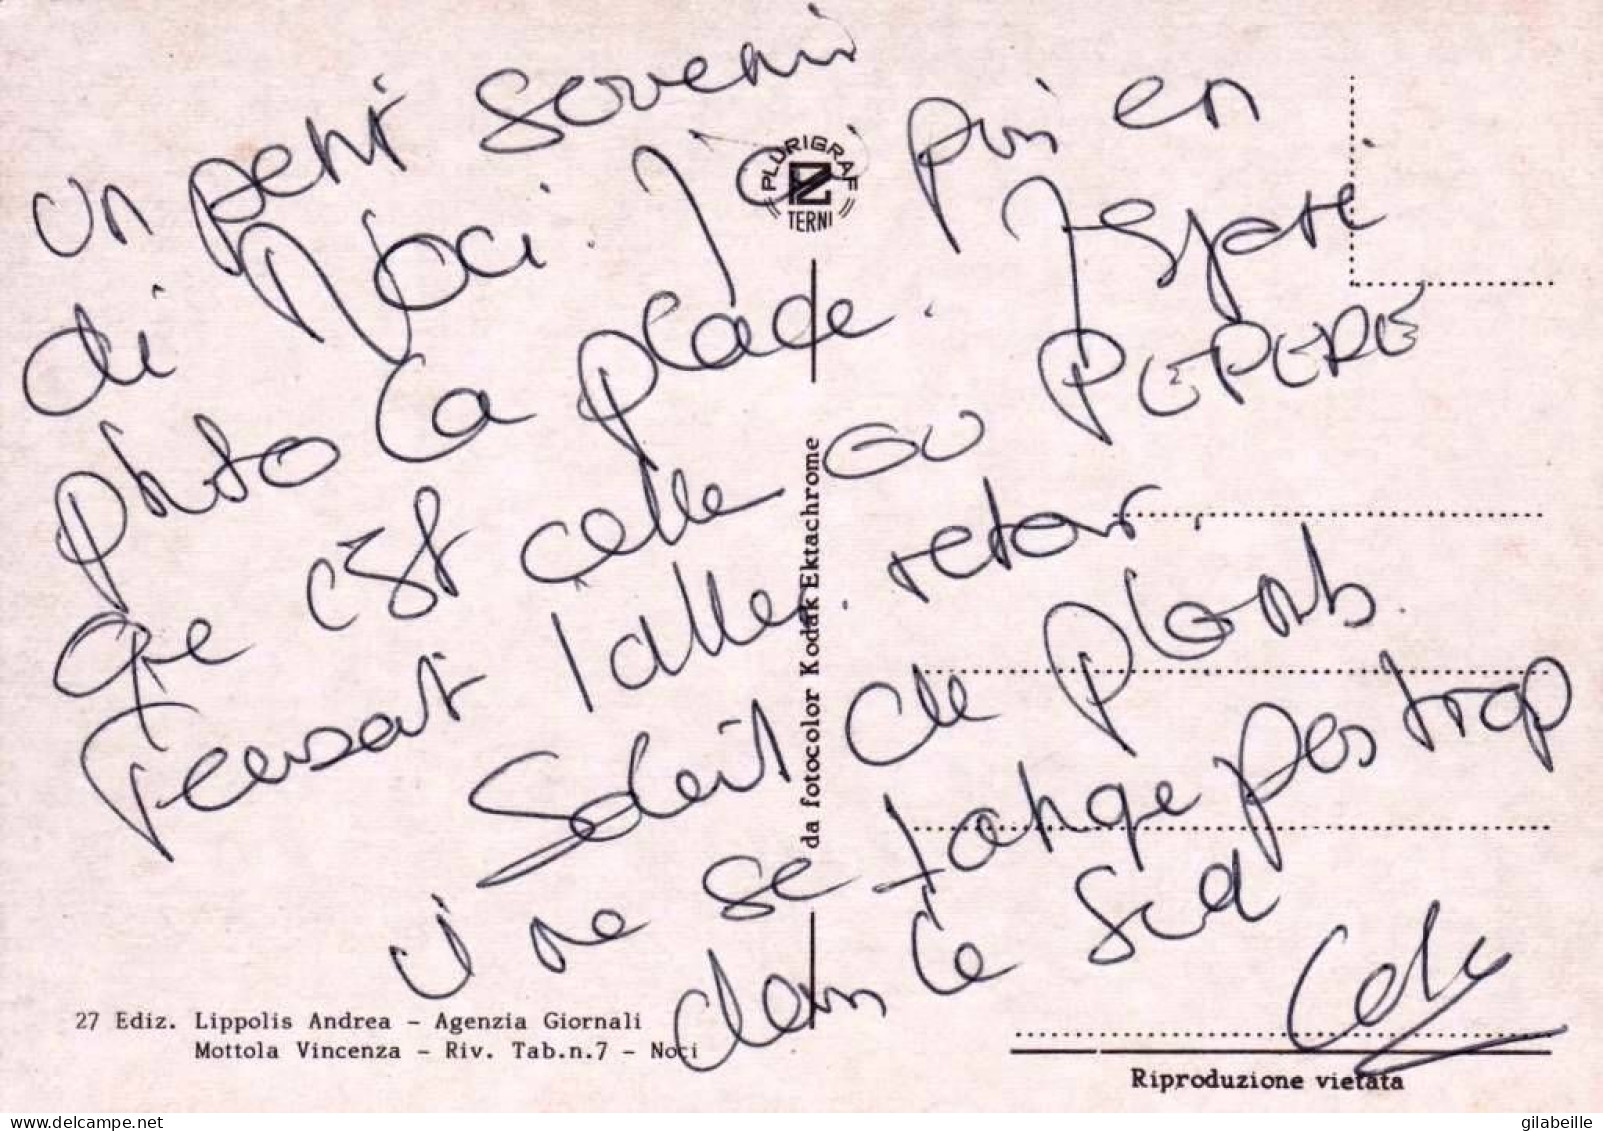 un petit souvenir
di Noci. J'ai pris en
photo la place. J'espere
que c'est celle ou PEPERE
Fensait l'aller. retour.
Soleil de plomb.
il ne se tange pas trop
dans le sud
PLURIGRAF
TERNI
da fotocolor Kodak Ektachrome
27 Ediz. Lippolis Andrea - Agenzia Giornali
Mottola Vincenza - Riv. Tab.n.7 - Noci
Riproduzione vietata
delcampe.net
gilabeille